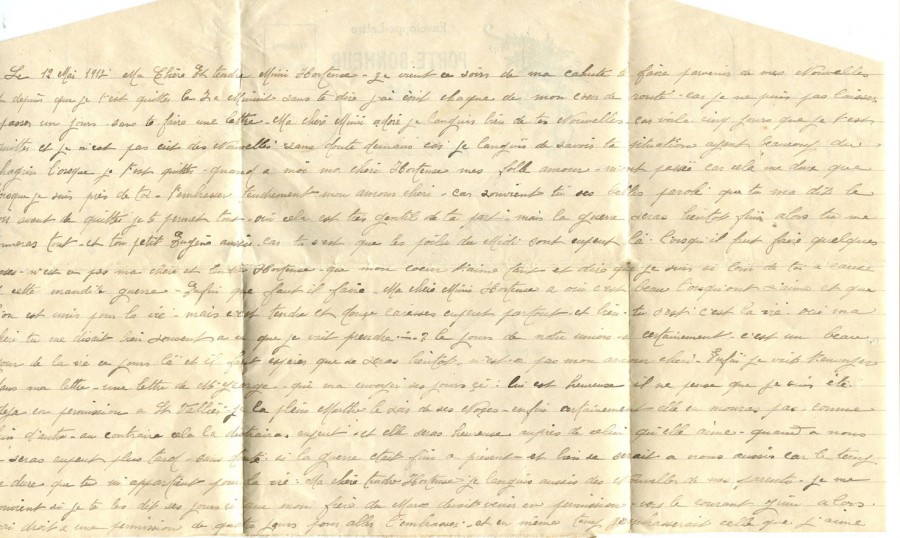 Le 12 Mai 1917. Ma Chère Et tendre Mimi Hortense. je vient ce soir de ma cahute te faire parvenir de mes Nouvelles
depuis que je t'est quitter le Minuit sans te dire j'ai écrit chaque de mon coin de route. car je ne puis pas laisser
passer un jours. sans te faire une lettre. Ma chère Mimi adoré je languis bien de tes Nouvelles. car voila cinq jours que je t'est
quitter et je n'est pas eut des Nouvelles. sans doute demains car je languis de savoir la situation ayant beaucoup du
chagrin lorsque je t'est quitter. quand a moi ma chère Hortense mes folle amour. m'ont passée car cela me dure que
lorsque je suis près de toi. t'embrasser tendrement mon amour chéri car souvient tu ses belles parole que tu ma dit le
avant de quitter je te promet tout. oui cela est très gentil de ta part mais la guerre seras bientot finie alors tu me
donneras tout. et ton petit Eugène aussi. car tu s'est que les poilus du Midi sont enjent là. lorsqu'il faut faire quelques
n'est en pas ma chère et tendre Hortense. que mon coeur t'aime tant et dire que je suis si loin de toi a cause
cette maudite guerre. Enfin que faut il faire. Ma chère Mimi Hortense a oui c'est beau lorsqu'ont s'aime et que
l'on est unis pour la vie. mais c'est tendre et douze caresses enjent partout. et bien. tu s'est. c'est la vie. oui ma
chéri tu me disait bien souvent a ce que je vait prendre ? le jours de notre union. a certainement c'est un beau
jour de la vie ce jours là et il faut espérer que se seras bientot. n'est. a pas mon amour chéri. Enfin je vait t'envoyer
dans ma lettre. une lettre de Mr George. qui ma envoyer ses jours çi. lui est heureuse il ne pense que je suis été
deja en permission a St Vallier. je la plein Marthe le soir de ses Noces. enfin certainement elle en mouras pas. comme
bien d'autre. au contraire cela la distrairas enjent et elle seras heureuse auprès de celui qu'elle aime. quand a nous
seras enjent plus tard. sans doute. si la guerre etait fini a present. et bien se serait a nous aussi car le temps
me dure que tu m'appartient pour la vie. Ma chère tendre Hortense. je languis aussi des Nouvelles de mes parents. je me
souvient si je te l'es dit ses jours ci que mon frère du Maroc devait venir en permission. vers le courant Juin alors
j'ai droit a une permission de quatre jours pour aller l'embrasser. et en même temp j'embrasserait celle que j'aime